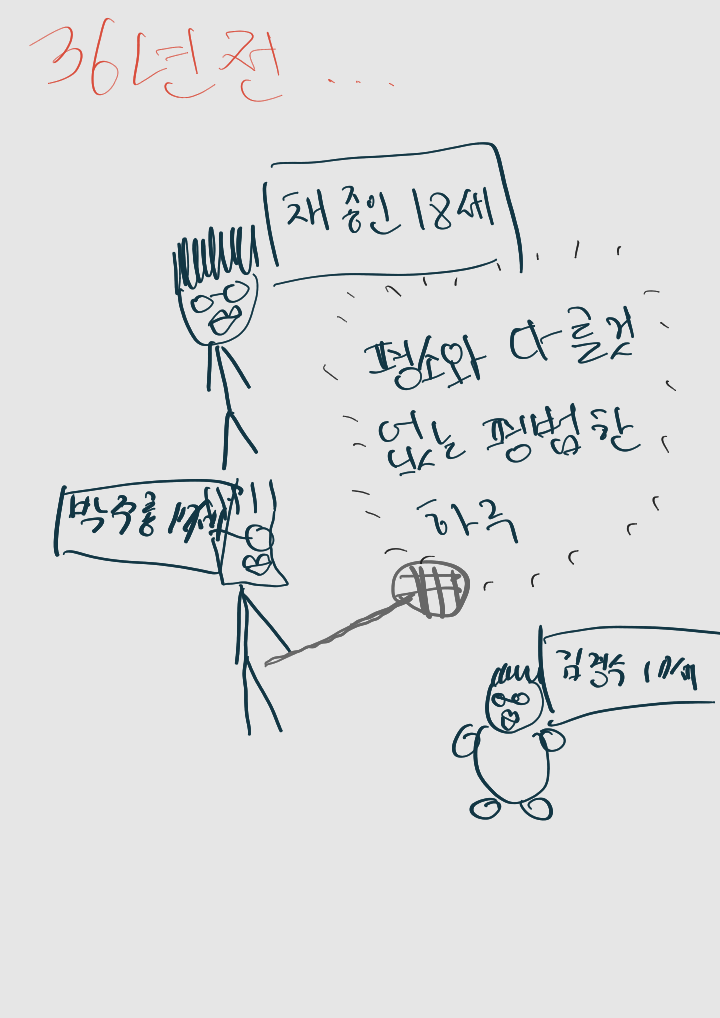 36년전...
채종인 18세
평소와 다를것
없는 평범한
하루
박수홍
김광수 17세